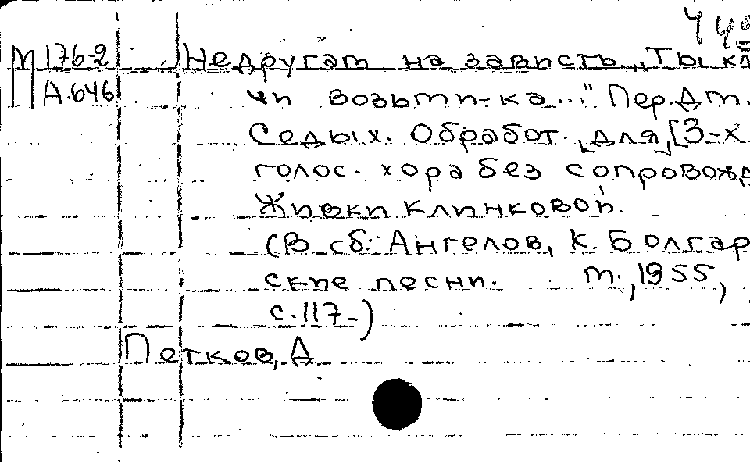 М 176-2 Недругам на зависть „Ты кл
А.646 чи возьми-ка..." Пер. Дм.
Седых. Обработ. для [3-х
голос. хора без сопровожд
Живки Клинковой.
(В сб: Ангелов, К. Болгар
ские песни. М., 1955,
с.117-)
Петков, Д